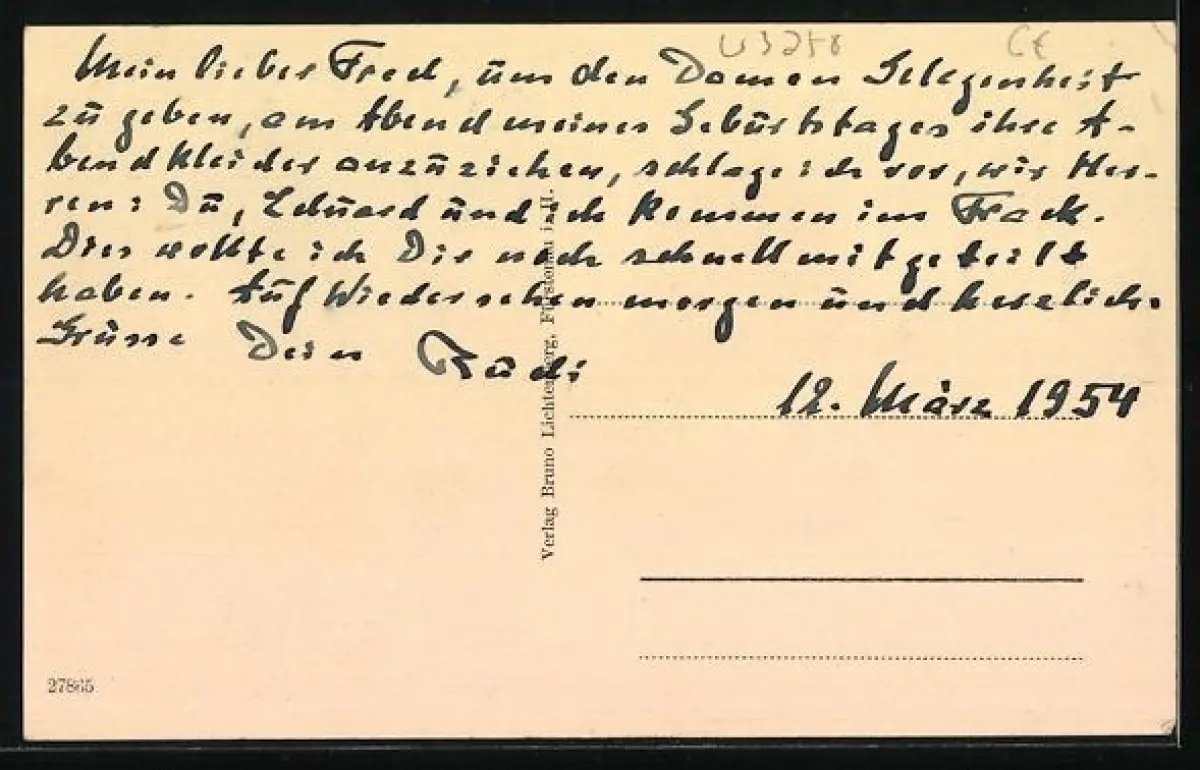 U 3278 CE
Mein lieber Fred, um den Damen Gelegenheit
zu geben, am Abend meines Geburtstages ihre A-
bendkleider anzuziehen, schlage ich vor, wir Her-
ren: Du, Eduard und ich kommen im Frack.
Dies wollte ich Dir noch schnell mitgeteilt
haben. Auf Wiedersehen morgen und herzliche
Grüsse Dein Rudi
12. März 1954
Verlag Bruno Lichtenberg, Fürstenau i. H.
27865